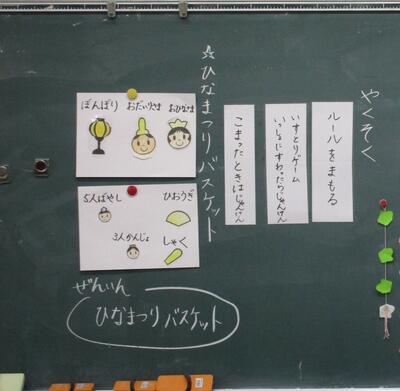 やくそく
ルールをまもる
いすとりゲーム
いっしょにすわったらじゃんけん
こまったときはじゃんけん
☆ひなまつりバスケット
ぼんぼり
おだいりさま
おひなさま
5人ばやし
3人かんじょ
ひおうぎ
しゃく
ぜんいん
ひなまつりバスケット